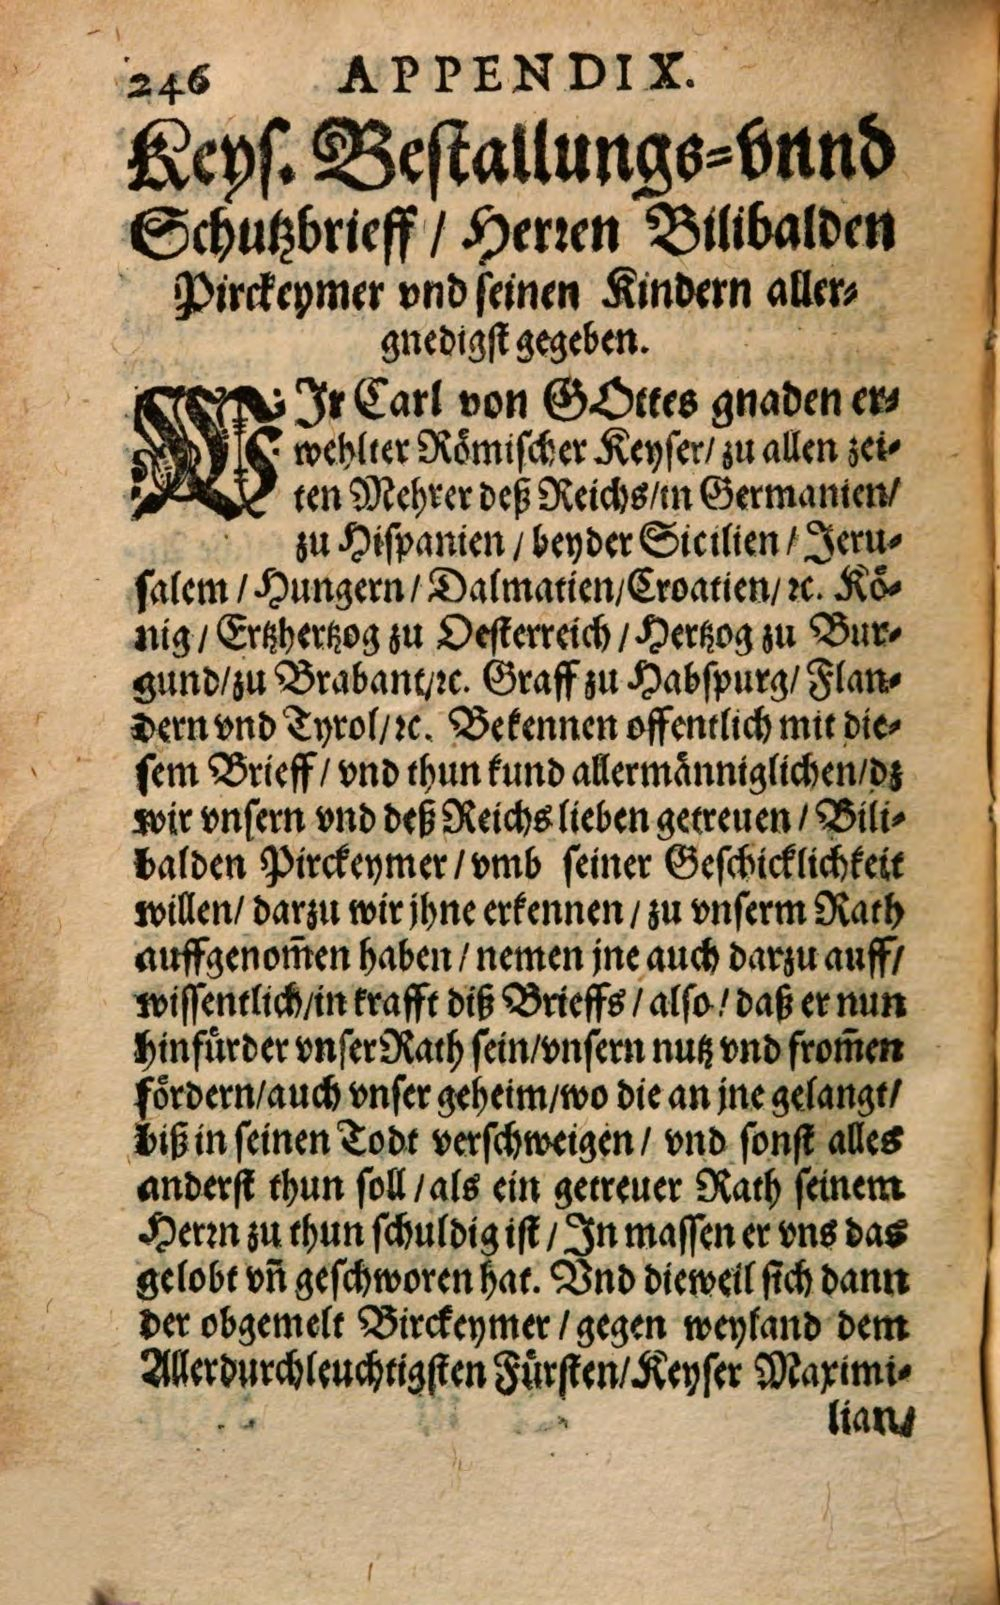 246 APPENDIX.
Keys. Bestallungs-vnnd
Schutzbrieff / Herren Bilibalden
Pirckeymer vnd seinen Kindern aller-
gnedigst gegeben.
WIr Carl von GOttes gnaden er-
wehlter Römischer Keyser/ zu allen zei-
ten Mehrer deß Reichs/in Germanien/
zu Hispanien / beyder Sicilien / Jeru-
salem / Hungern / Dalmatien/Croatien/ ꝛc. Kö-
nig / Ertzhertzog zu Oesterreich / Hertzog zu Bur-
gund/zu Brabant/ꝛc. Graff zu Habspurg/ Flan-
dern vnd Tyrol/ꝛc. Bekennen offentlich mit die-
sem Brieff / vnd thun kund allermänniglichen/dz
wir vnsern vnd deß Reichs lieben getreuen / Bili-
balden Pirckeymer / vmb seiner Geschicklichkeit
willen/ darzu wir jhne erkennen / zu vnserm Rath
auffgenom̃en haben / nemen jne auch darzu auff/
wissentlich/in krafft diß Brieffs / also / daß er nun
hinfürder vnser Rath sein/vnsern nutz vnd from̃en
fördern/auch vnser geheim/wo die an jne gelangt/
biß in seinen Todt verschweigen / vnd sonst alles
anderst thun soll / als ein getreuer Rath seinem
Herrn zu thun schuldig ist / In massen er vns das
gelobt vn̄ geschworen hat. Vnd dieweil sich dann
der obgemelt Birckeymer / gegen weyland dem
Allerdurchleuchtigsten Fürsten/Keyser Maximi-
lian/